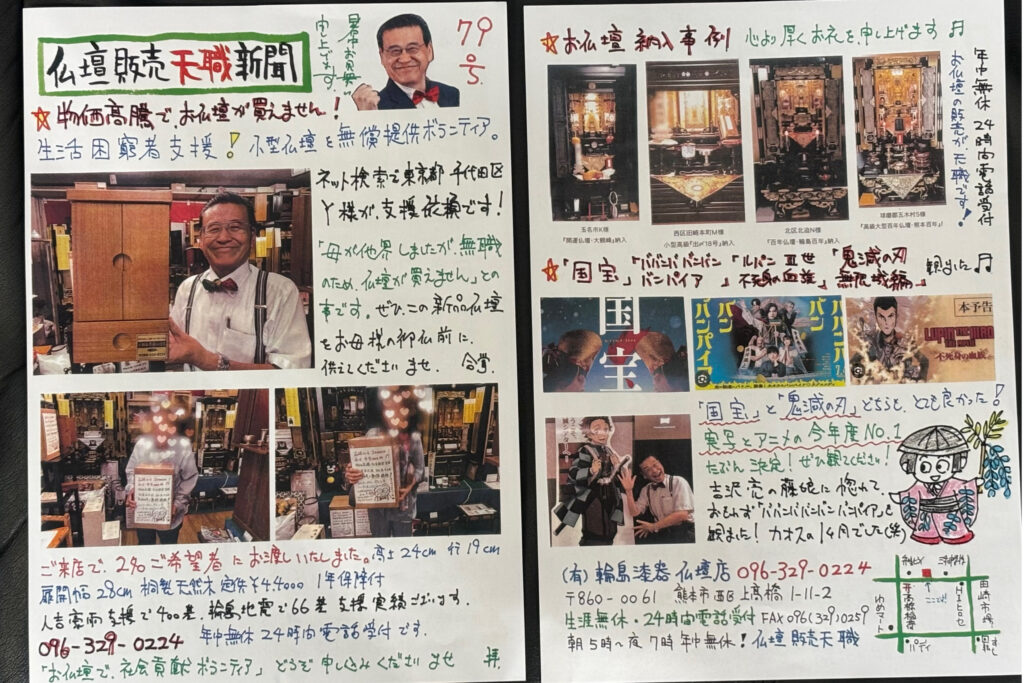 仏壇販売天職新聞
暑中お見舞い
申し上げます。
79号
☆物価高騰でお仏壇が買えません!
生活困窮者支援!小型仏壇を無償提供ボランティア。
ネット検索で東京都千代田区
Y様が、支援依頼です!
「母が他界しましたが、無職
のため、仏壇が買えません」との
事です。ぜひ、この新品仏壇
をお母様の御仏前に、
供えてくださいませ。合掌.
ご来店で、2名ご希望者にお渡しいたしました。高さ24cm 行19cm
扉開幅28cm 桐製天然木 定価¥44.000 1年保障付
人吉豪雨支援で400基、輪島地震で66基支援実績ございます
096-329-0224 年中無休24時間電話受付です.
「お仏壇で、社会貢献ボランティア」どうぞ申し込みくださいませ 拝.
☆お仏壇納入事例 心より厚くお礼を、申し上げます♬
年中無休24時間電話受付
お仏壇の販売が、天職です!
玉名市K様
『開運仏壇・大観峰』納入
西区旧崎本町M様
小型高級『出〆18号』納入
北区北迫N様
『百年仏壇・輪島百年』納入
球磨郡五木村S様
『高級大型百年仏壇・熊本百年』
☆「国宝」「ババンババンバンバンパイア」「ルパンⅢ世 不死身の血族」「鬼滅の刃 無限城編」観ました♬
国宝
ババンババンバンバンパイア
本予告
LUPIN THE IIIRD
不死身の血族
「国宝」と「鬼滅の刃」どちらも、とても良かった!
実写とアニメの今年度NO.1
たぶん決定!ぜひ観てください!
吉沢亮の藤娘に惚れて、
おもわず「ババンババンバンバンパイア」も
観ました!カオスの1ヶ月でした(笑)
(有)輪島漆器仏壇店 096-329-0224
〒860-0061 熊本市西区上高橋1-11-2
生涯無休・24時間電話受付 FAX 096(329)0259
朝5時~夜7時 年中無休!仏壇販売天職
ここだよ!
田崎市場
ゆめマート